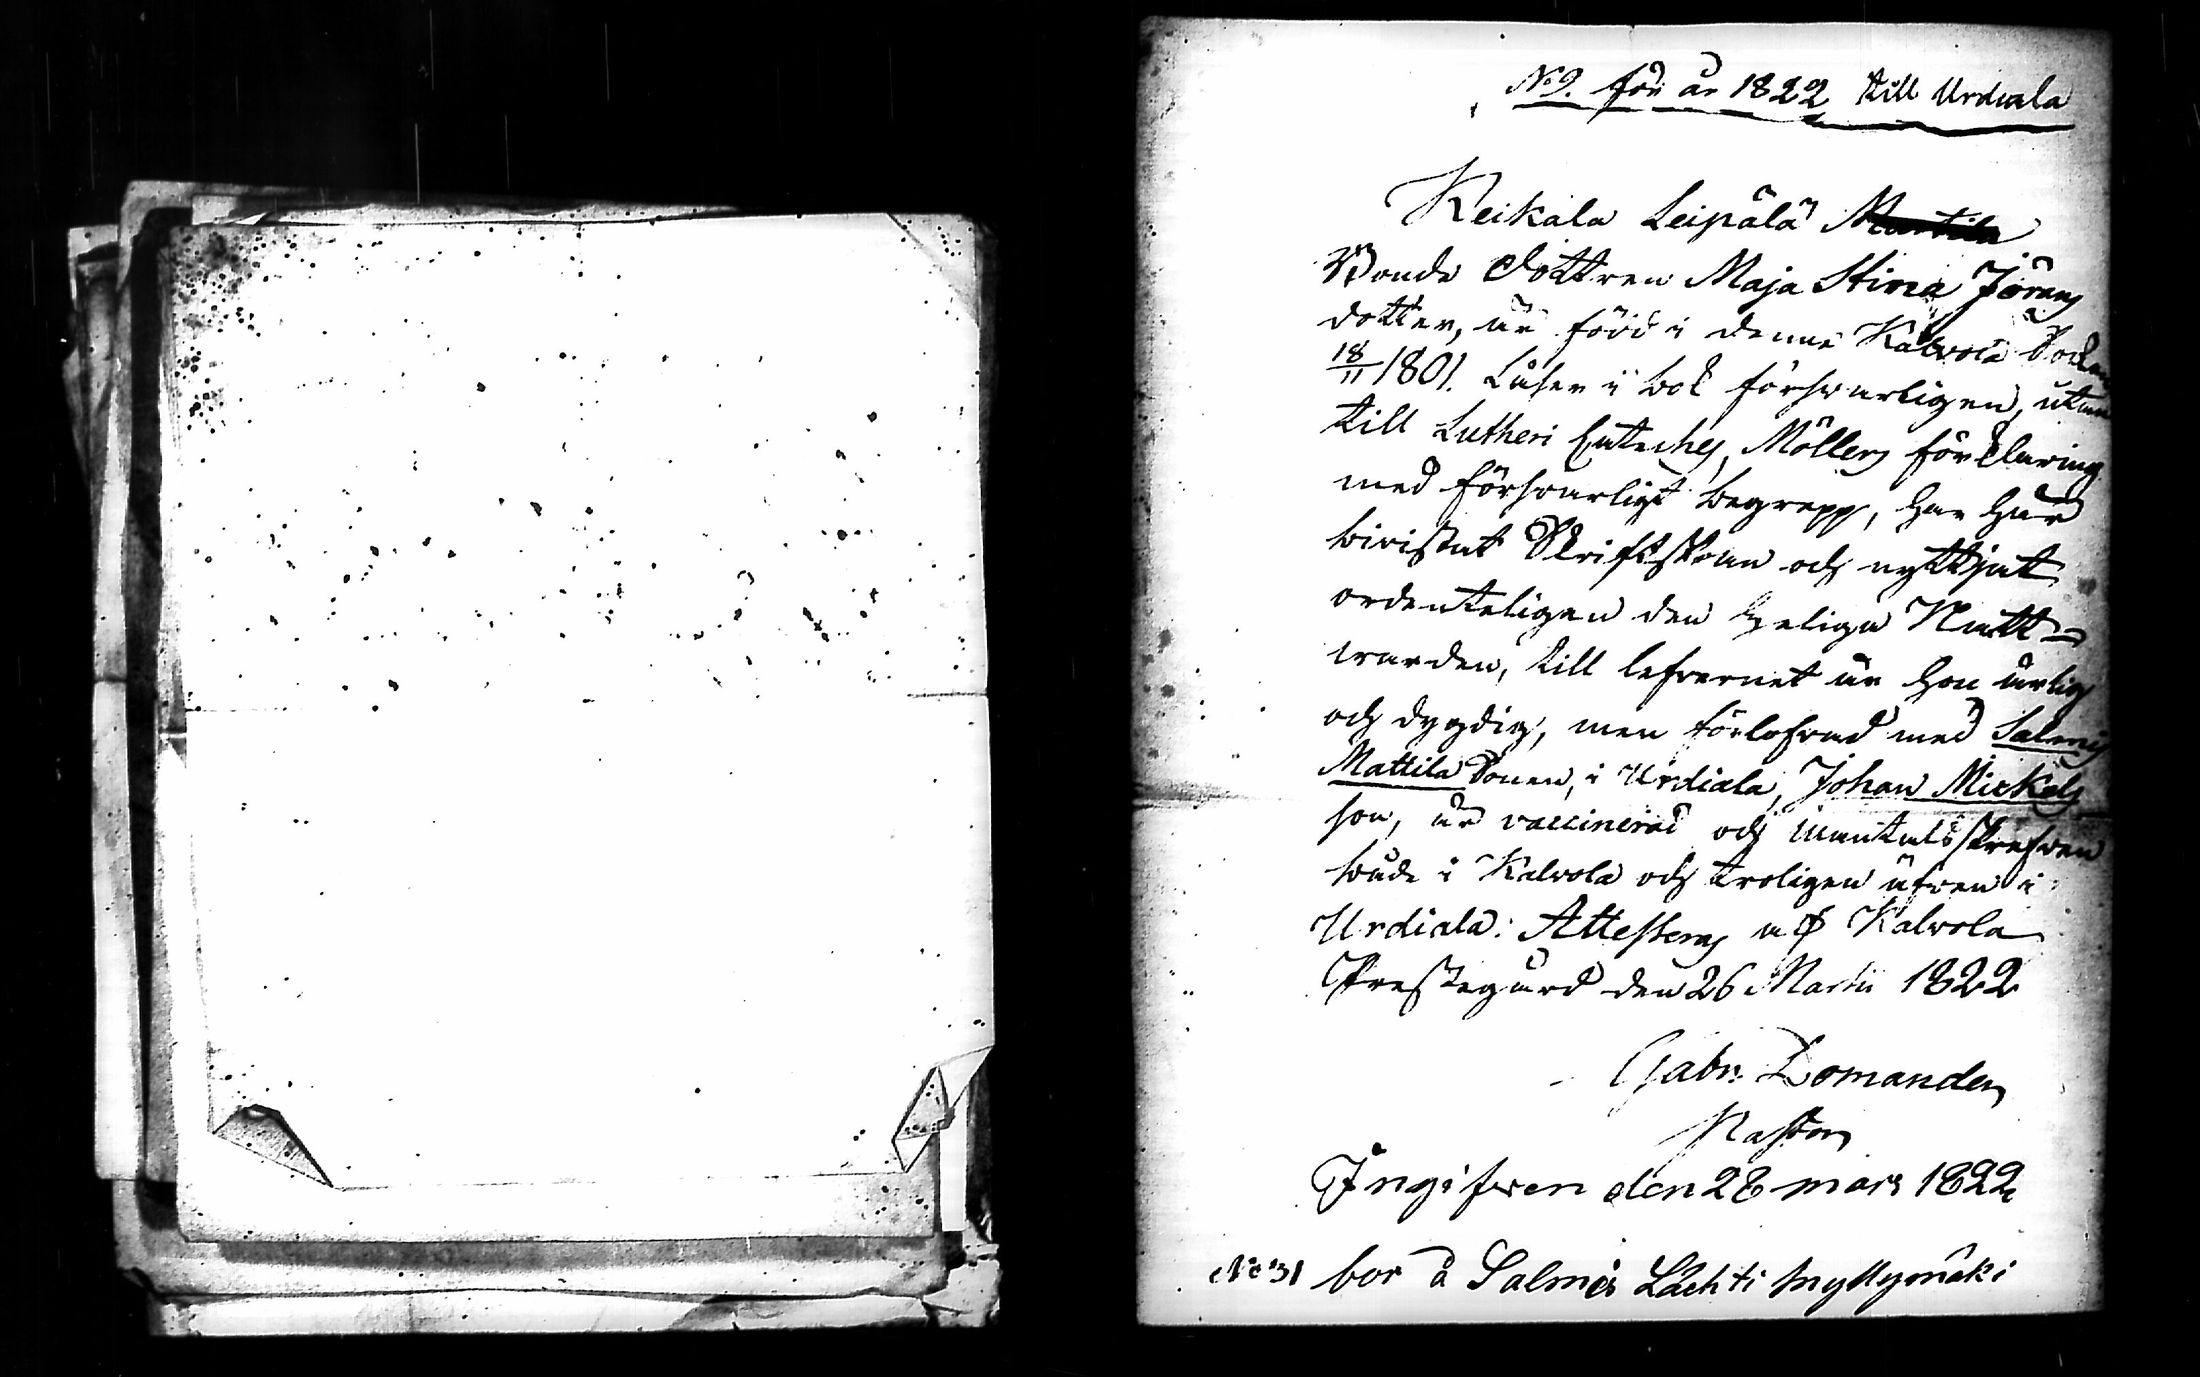 No 9. för år 1822 till Urdiala
Keikala Leipälä Marttila
Bonde dottren Maja Stina Jörans
dotter, är född i denna Kalvola Socken
18/11 1801. Läser i bok försvarligen, utan
till Lutheri Cateches, Möllers förklaring
med försvarligt begrepp, har här
bivistat Skriftskolan och nyttjat
ordenteligen den heliga Natt-
warden, till lefvernet är hon ärlig
och dygdig, men förlofwad med Salmis
Mattila Sonen, i Urdiala, Johan Mickels
son, är vaccinerad och mantalsskrefwen
både i Kalvola och troligen äfwen i
Urdiala: Attesteras af Kalvola
Prestegård den 26 Martii 1822
Gabr. Lomander
Pastor
Ingifwen den 28 mars 1822
No 31 bor å Salmis Lachti myllymäki